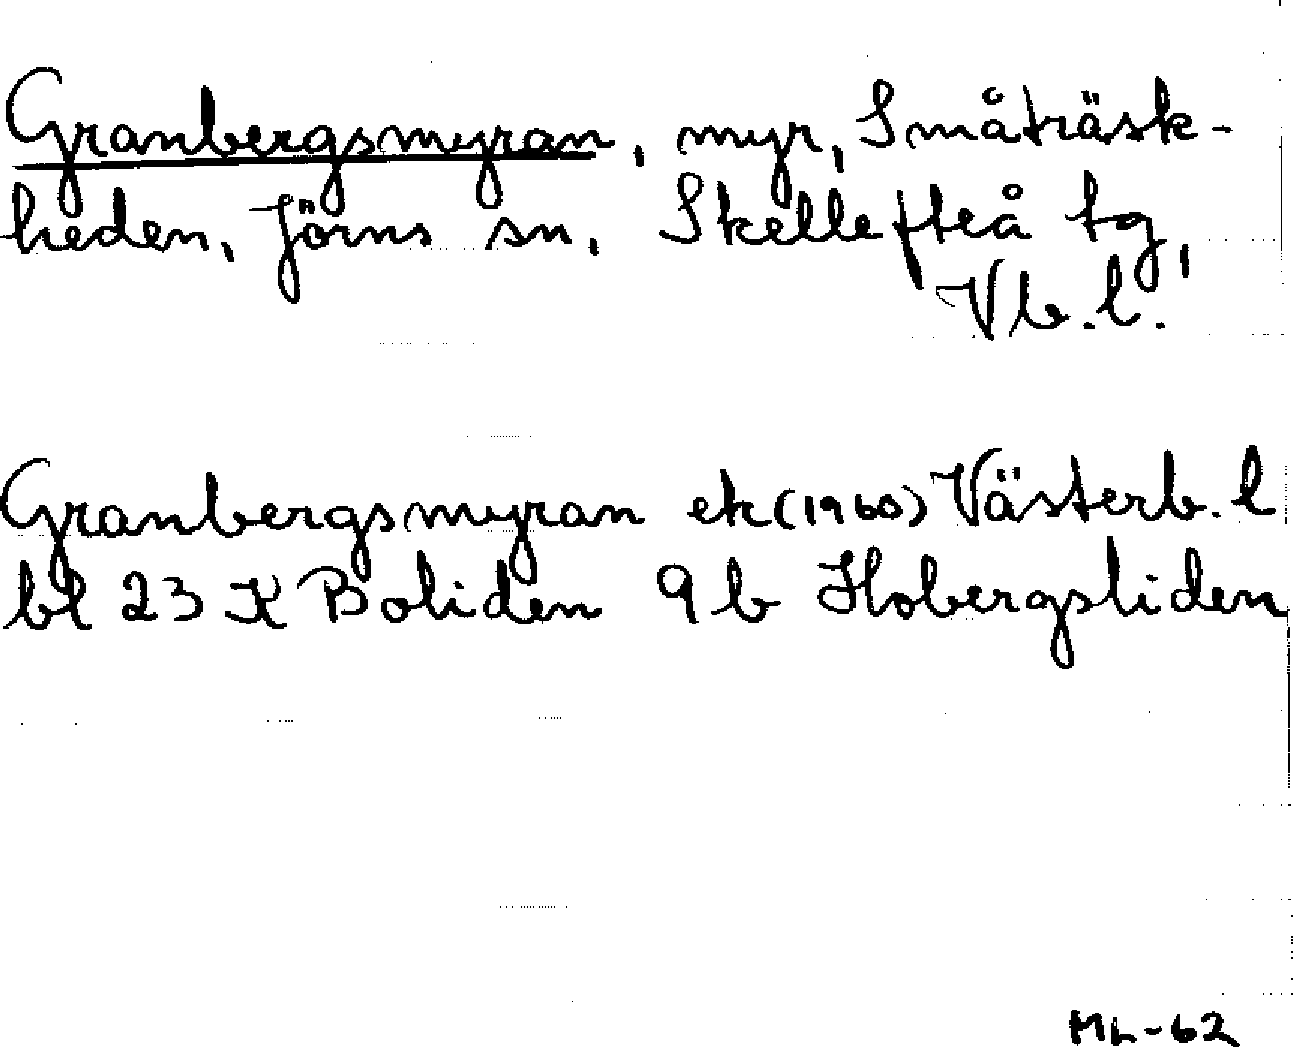 Granbergsmyran, myr, Småträsk-
heden, Jörns sn, Skellefteå tg,
Vb.l.
Granbergsmyran ek (1960) Västerb. l
bl 23 K Boliden 9 b Hobergsliden
ML-62